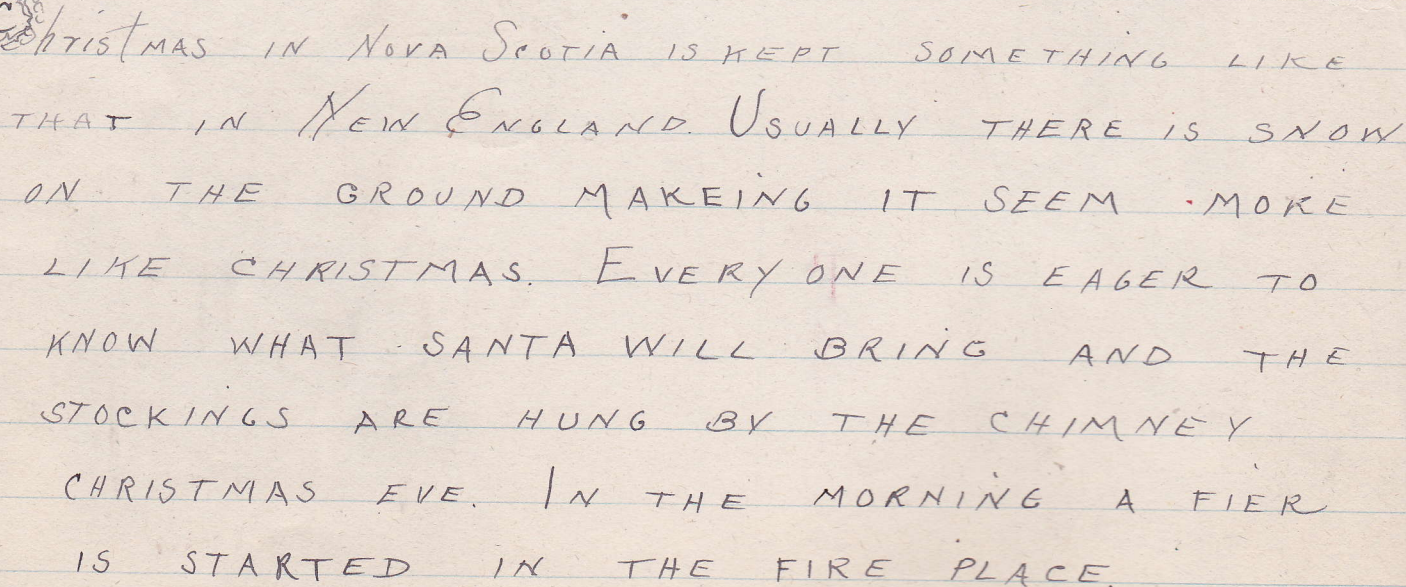 Christmas in Nova Scotia is kept something like
that in New England. Usually there is snow
on the ground makeing it seem more
like Christmas. Every one is eager to
know what Santa will bring and the
stockings are hung by the chimney
Christmas Eve. In the morning a fier
is started in the fire place.